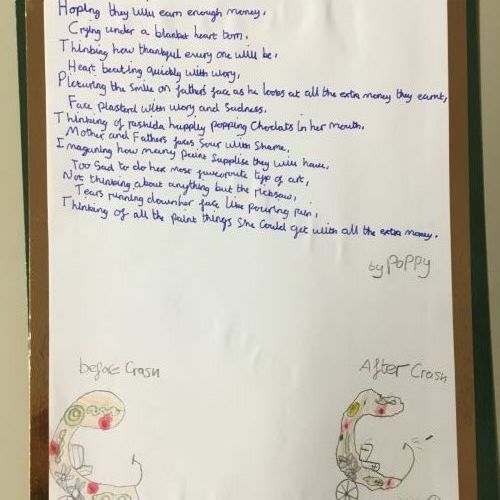 Hoping they will earn enough money,
Crying under a blanket heart torn,
Thinking how thankful every one will be,
Heart beating quickly with wory,
Picturing the smile on fathers face as he looks at all the extra money they earnt,
Face plasterd with wory and Sadness.
Thinking of rashida happley popping Choclats in her mouth,
Mother and Fathers faces Sour with Shame,
Imaguning how meny paint Supplise they will have,
Too Sad to do her most favourite typ of art,
Not thinking about anything but the ricksaw,
Tears running down her face like pouring run,
Thinking of all the paint things She Could get with all the extra money.
by Poppy
before Crash
After Crash